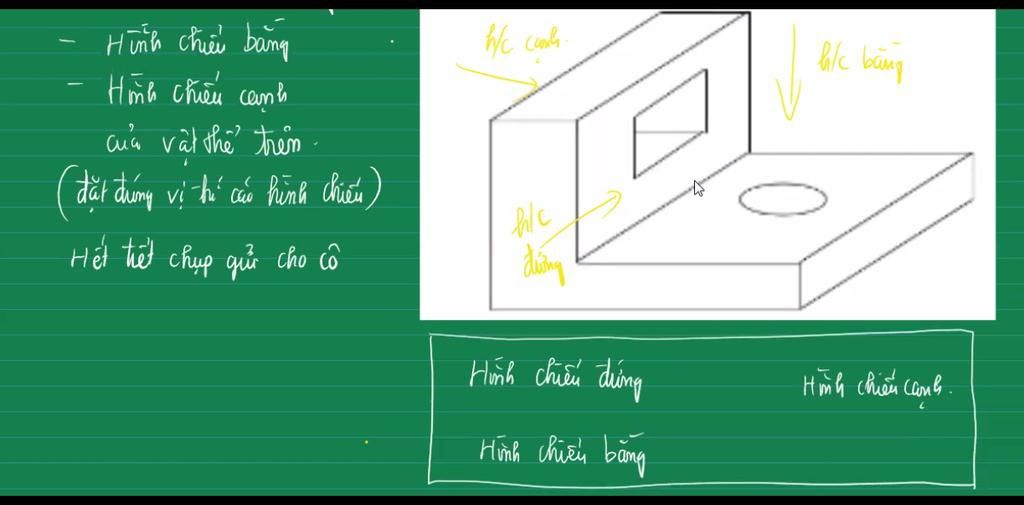 - Hình chiếu bằng
- Hình chiếu cạnh
của vật thể trên.
(đặt đúng vị trí các hình chiếu)
Hết tiết chụp gửi cho cô
h/c cạnh.
h/c bằng
h/c
đứng
Hình chiếu đứng
Hình chiếu cạnh.
Hình chiếu bằng